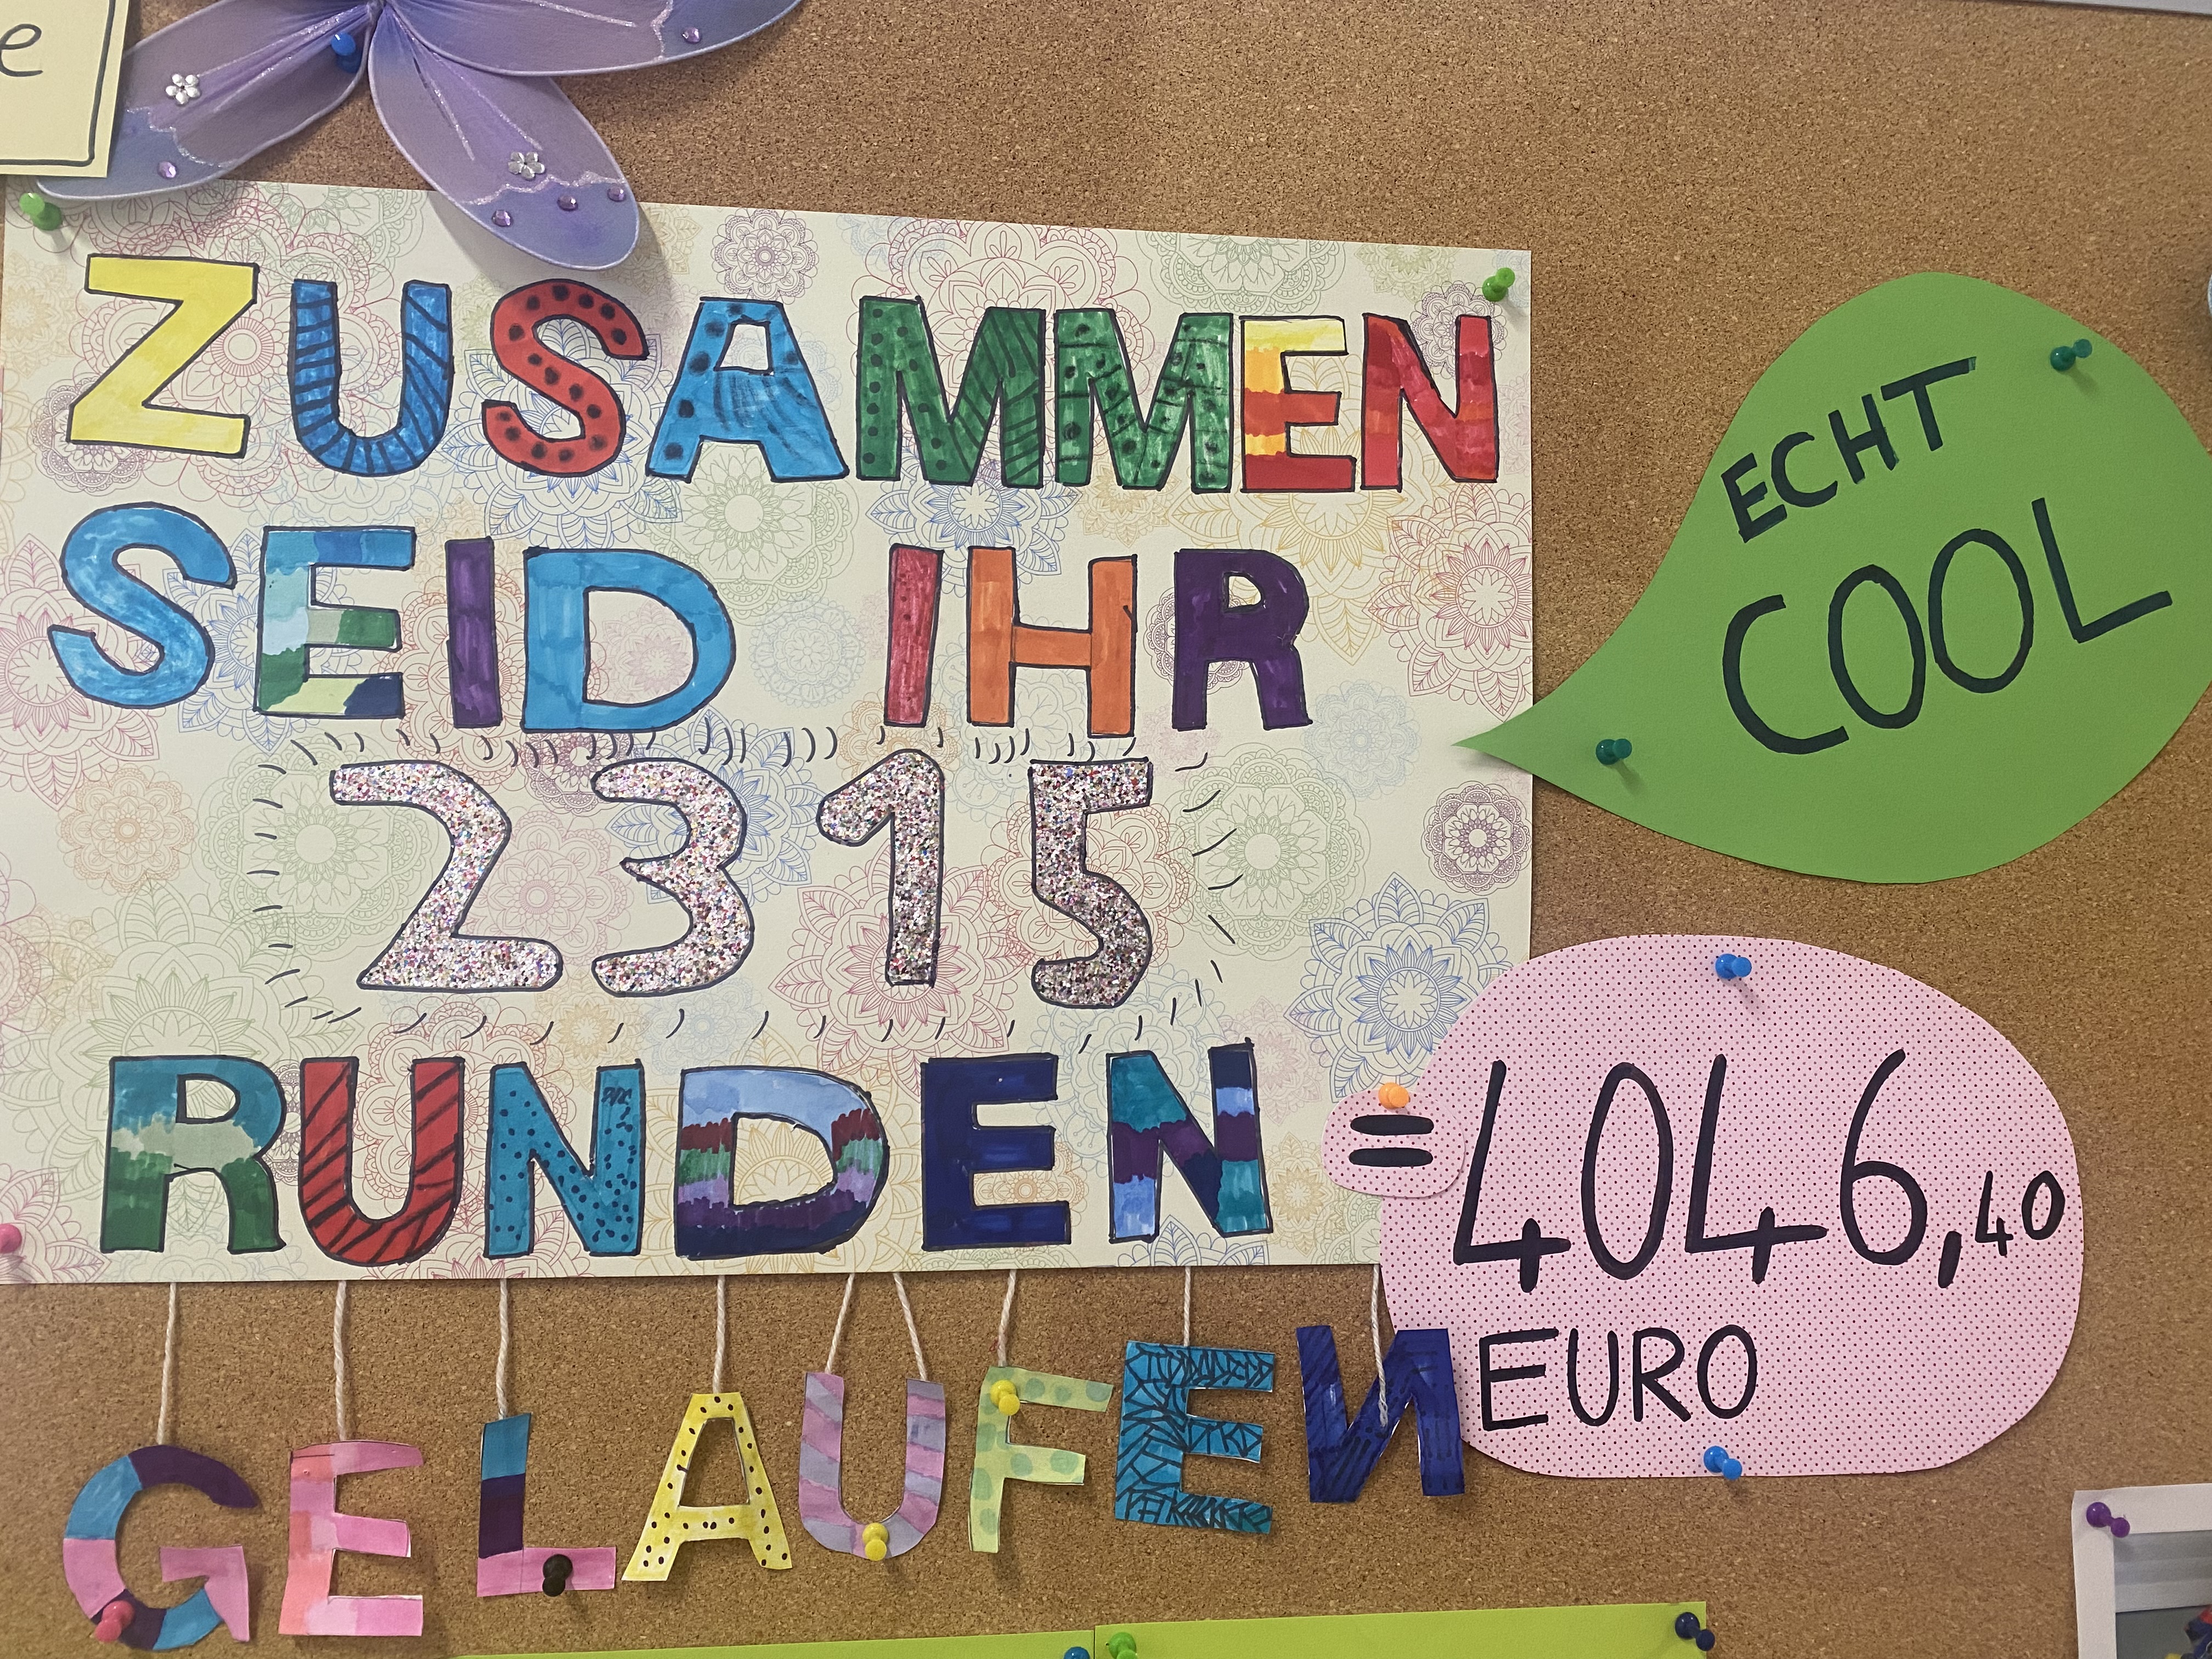 e
ZUSAMMEN
SEID IHR
2315
RUNDEN
GELAUFEN
ECHT
COOL
=4046,40
EURO